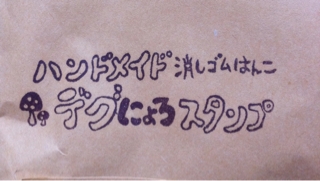 ハンドメイド 消しゴムはんこ
デグにょろスタンプ